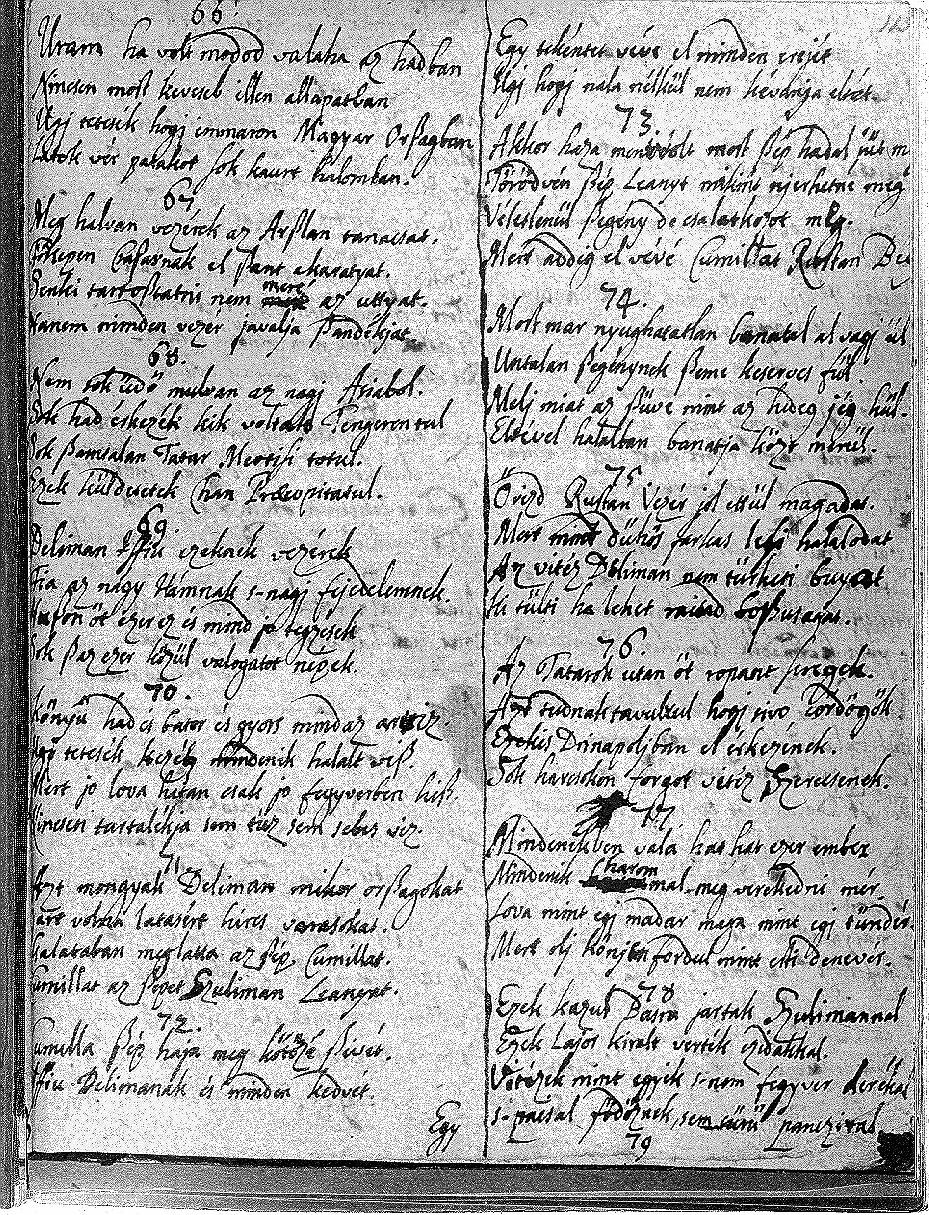 66.
Uram ha volt modod valaha az hadban
Nincsen most keveseb illen allapatban
Ugj tetczik hogj immaron Magyar Orßagban
Latok vér patakot sok kaurt halomban.
67
Meg halvan vezérek az Arßlan tanacsat.
Csaßarnak el ßant akaratyat.
Senki tartoßtatni nem meré az uttyat.
Hanem minden vezér javalja ßandékjat
68.
Nem sok üdö mulvan az nagj Asiabol.
Sok had érkezék kik voltak Tengeren tul
Sok ßamtalan Tatar
Ezek küldetetek Chan Præcopitatul.
69.
Deliman Iffiu ezeknek vezérek
Fia az nagy Hamnak s-nagj fejedelemnek.
öt ezer ez és mind jo tegzesek
Sok ßaz ezer közül valogatot népek.
70.
Könyü had és bator és gyors mind az
tetczik mindenik halalt viß.
Mert jo lova hatan csak jo fegyverben hiß.
Nincsen tartalékja sem tüz sem sebes viz.
71
Azt mongyak Deliman mikor orßagokat
Jart volna latasért hires varasokat.
Galataban meglatta az ßép Cumillat.
Cumillat az ßépet Szuliman Leanyat.
72.
Cumilla ßép haja meg kötözé ßivét.
Iffiu Delimanak és minden kedvét.
Egy
Egy tekéntet véve el minden erejét
Ugj hogj nala nélkül nem kévánja életét.
73.
Akkor haza ment völt most ßép hadal jüt
Törödvén ßép Leanyt miként njerhetne meg
Véletlenül ßegény de csalatkozot meg.
Mert addig el vévé Cumillat Rustan Beg
74.
Most mar nyughatatlan banatal al vagj ül
Untalan ßegénynek ßeme keserves fül.
Melj miat az ßüve mint az hideg jég hül.
Eltével halalban banatja közt merül.
75.
Örizd Rustan Vezér jol ettül magadat.
Mert mint dühös farkas lesi halalodat
Az vitéz Deliman nem türheti bujat
Ki tülti ha lehet rajtad boßusagat.
76.
Az Tatarok utan öt ropant sereg
Azt tudnak tavulrul hogj
Ezekis Drinapoljban el érkezének.
Sok harczokon forgot vitéz Szerecsenek.
77
Mindenikben valá hat hat ezer ember
Mindenik harommal meg verekedni mér
Lova mint egj madar maga mint egj tündér.
Mert olj könjen fordul mint etti denevér.
78
Ezek hazul Dasra jartak Szulimannal
Ezek Lajos kiralt verték czidakkal.
Vitézek mint egyik s-nem fegyver derékal
s-pacsal födöznek, sem sürü panczéral
79